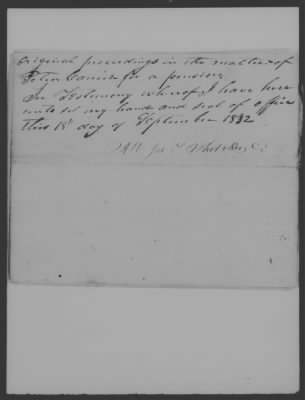 original proceedings in the matter of
Peter for a pension.
In Testimony whereof I have here
unto set my hand and seal of office
this 18th day of September 1832